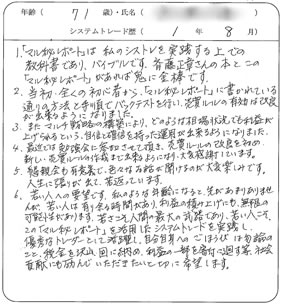 年齢（ 71 歳）・氏名（ ）
システムトレード歴（ 1 年 8 月）
1.「マル秘レポート」は私のシストレを実践する上での
教科書であり、バイブルです。斉藤正章さんの本とこの
「マル秘レポート」があれば鬼に金棒です。
2. 当初、全くの初心者から「マル秘レポート」に書かれている
通りの方法と手順でバックテストを行い、売買ルールの有効な改良
が出来るようになりました。
3. またマルチ戦略の構築により、どのような相場状況でも利益が
上げられるという、自信と確信を持った運用が出来るようになりました。
4. 最近では勉強会に参加させて頂き、売買ルールの改良を初め、
新しい売買ルールの作成まで出来るようになり、大変感謝しています。
5. 懇親会も有意義で、色々な話が聞けるのが大変楽しみです。
人生に張りが出て、若返っています。
6. 若い人への要望です。私のような年齢になると、先があまりありませ
んが、若い人は有り余る時間があり、利益の積み上げにも、無限の
可能性があります。若さこそ人間の最大の武器であり、若い人こそ、
この「マル秘レポート」を活用したシステムトレードを実践し、
優秀なトレーダーとして活躍し、自分自身へのごほうびは勿論の
こと、税金を沢山、国に納め、利益の一部を寄付に回す等、社会
貢献にも励んでいただきたいと切に希望します。